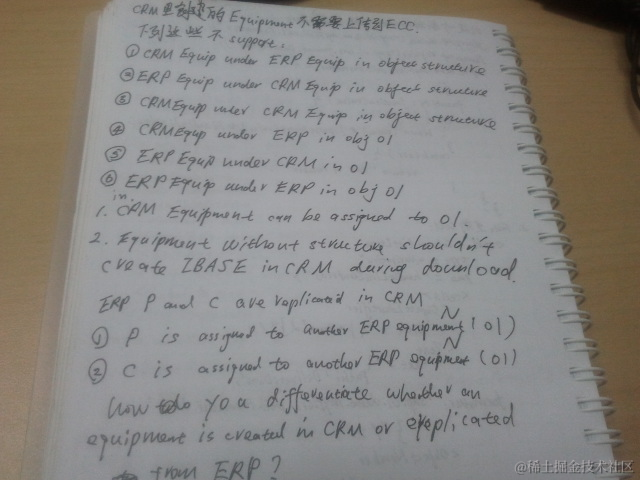 CRM里创建的Equipment不需要上传到ECC.
下列这些不support.
① CRM Equip under ERP Equip in object structure
② ERP Equip under CRM Equip in object structure
③ CRM Equip under CRM Equip in object structure
④ CRM Equip under ERP in obj 01
⑤ ERP Equip under CRM in 01
⑥ ERP Equip under ERP in obj 01
in
1. CRM Equipment can be assigned to 01.
2. Equipment without structure shouldn't
create IBASE in CRM during download.
ERP P and C are replicated in CRM
N
① P is assigned to another ERP equipment (01)
N
② C is assigned to another ERP equipment (01)
how do you differentiate whether an
equipment is created in CRM or replicated
from ERP?
@稀土掘金技术社区